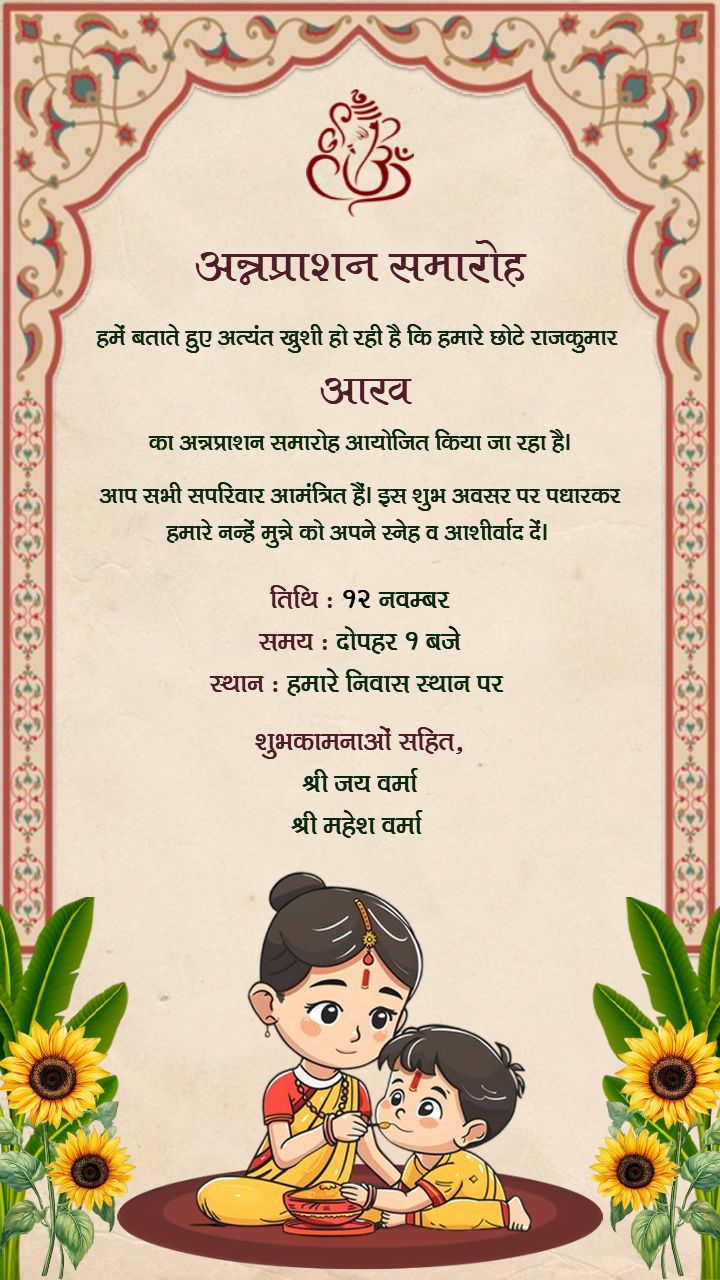 अन्नप्राशन समारोह
हमें बताते हुए अत्यंत खुशी हो रही है कि हमारे छोटे राजकुमार
आरव
का अन्नप्राशन समारोह आयोजित किया जा रहा है।
आप सभी सपरिवार आमंत्रित हैं। इस शुभ अवसर पर पधारकर
हमारे नन्हें मुन्ने को अपने स्नेह व आशीर्वाद दें।
तिथि : १२ नवम्बर
समय : दोपहर १ बजे
स्थान : हमारे निवास स्थान पर
शुभकामनाओं सहित,
श्री जय वर्मा
श्री महेश वर्मा